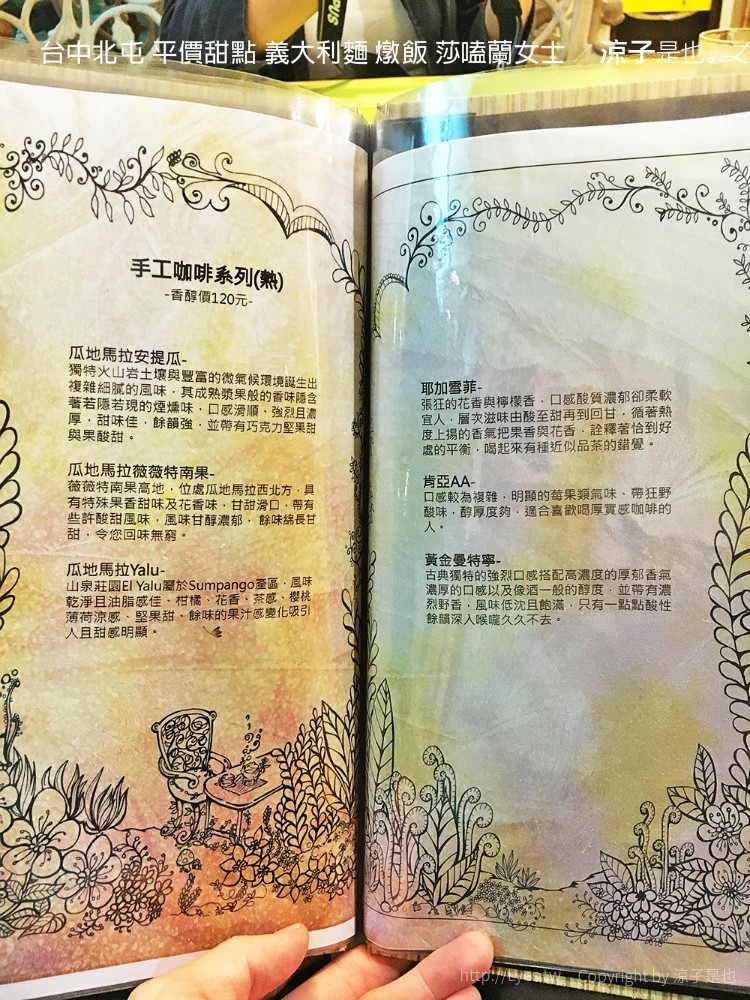 台中北屯 平價甜點 義大利麵 燉飯 莎嗑蘭女士 涼子是也。
手工咖啡系列(熱)
-香醇價120元-
瓜地馬拉安提瓜-
獨特火山岩土壤與豐富的微氣候環境誕生出
複雜細膩的風味，其成熟漿果般的香味隱含
著若隱若現的煙燻味，口感滑順、強烈且濃
厚，甜味佳，餘韻強，並帶有巧克力堅果甜
與果酸甜。
瓜地馬拉薇薇特南果-
薇薇特南果高地，位處瓜地馬拉西北方，具
有特殊果香甜味及花香味，甘甜滑口，帶有
些許酸甜風味，風味甘醇濃郁， 餘味綿長甘
甜，令您回味無窮。
瓜地馬拉Yalu-
山泉莊園El Yalu屬於Sumpango產區，風味
乾淨且油脂感佳、柑橘、花香、茶感、櫻桃
薄荷涼感、堅果甜、餘味的果汁感變化吸引
人且甜感明顯。
耶加雪菲-
張狂的花香與檸檬香，口感酸質濃郁卻柔軟
宜人，層次滋味由酸至甜再到回甘，循著熱
度上揚的香氣把果香與花香，詮釋著恰到好
處的平衡，喝起來有種近似品茶的錯覺。
肯亞AA-
口感較為複雜，明顯的莓果類氣味、帶狂野
酸味，醇厚度夠，適合喜歡喝厚實感咖啡的
人。
黃金曼特寧-
古典獨特的強烈口感搭配高濃度的厚郁香氣
濃厚的口感以及像酒一般的醇度，並帶有濃
烈野香，風味低沈且飽滿，只有一點點酸性
餘韻深入喉嚨久久不去。
Copyright by 涼子是也